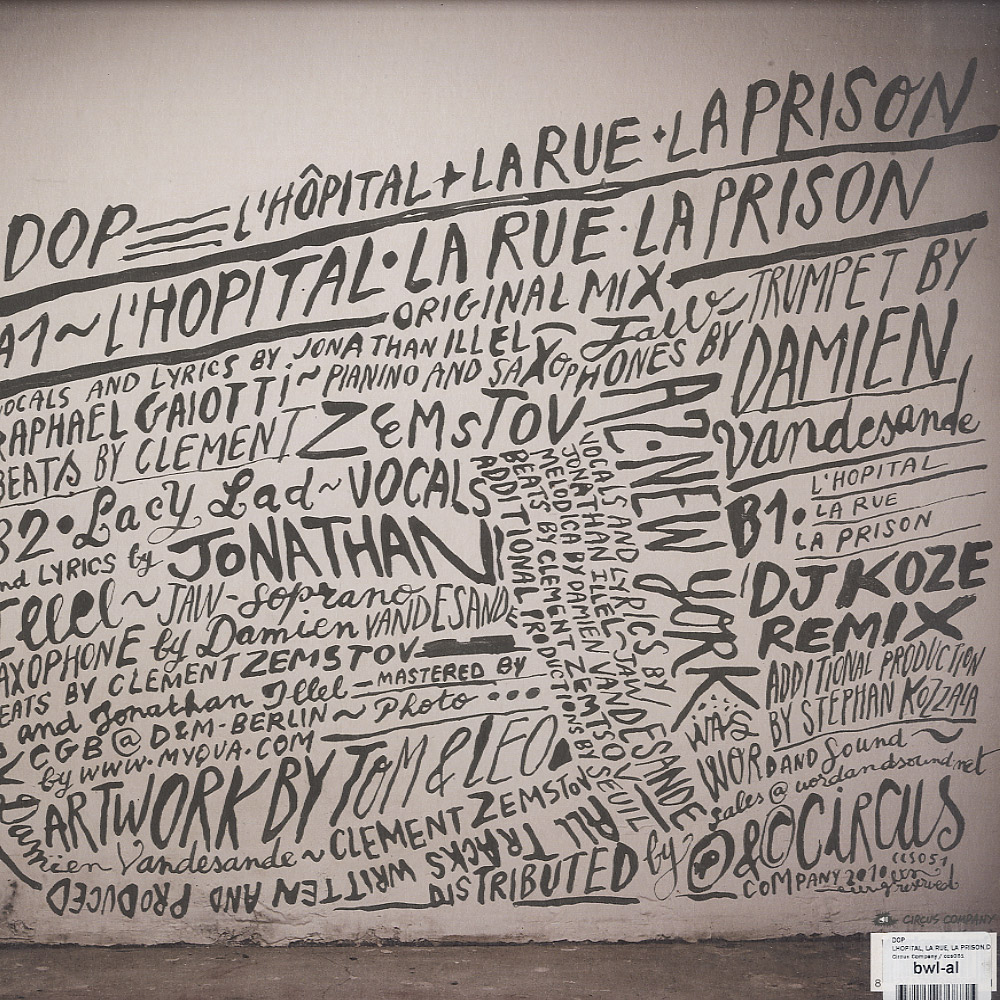 DOP L'HÔPITAL + LA RUE + LA PRISON
A1 ~ L'HOPITAL · LA RUE · LA PRISON
ORIGINAL MIX
VOCALS AND LYRICS BY JONATHAN ILLEL
RAPHAEL GAIOTTI ~ PIANINO AND SAXOPHONES BY
BEATS BY CLEMENT ZEMSTOV
JAW ~ TRUMPET BY
DAMIEN
Vandesande
A2 · NEW YORK
VOCALS AND LYRICS BY
JONATHAN ILLEL ~ JAW
MELODICA BY DAMIEN VANDESANDE
BEATS BY CLEMENT ZEMTSOV
ADDITIONAL PRODUCTIONS BY SEUIL
B1. L'HOPITAL
LA RUE
LA PRISON
DJ KOZE
REMIX
ADDITIONAL PRODUCTION
BY STEPHAN KOZZALA
B2 · Lacy Lad ~ VOCALS
and LYRICS by JONATHAN
Illel ~ JAW - Soprano
SAXOPHONE by Damien VANDESANDE
BEATS BY CLEMENT ZEMSTOV
and Jonathan Illel - MASTERED BY
CGB @ D&M - BERLIN ~ Photo
by WWW.MYQUA.COM
ARTWORK BY TOM & LEO.
ALL TRACKS WRITTEN AND PRODUCED
Damien Vandesande ~ CLEMENT ZEMSTOV
DISTRIBUTED by
WORD AND Sound ~
sales@wordandsound.net
℗ & © CIRCUS
COMPANY 2010 CCS051
CIRCUS COMPANY
DOP
LHOPITAL, LA RUE, LA PRISON,D
Circus Company / ccs051
bwl-al
8